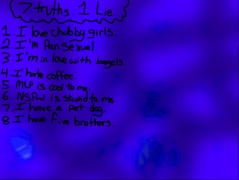 7 truths. 1 Lie
1 I love chubby girls.
2 I'm Pansexual
3 I'm in love with bagels.
4 I hate coffee.
5 MLP is cool to me
6 NSFW is sound to me
7 I have a pet dog.
8 I have five brothers